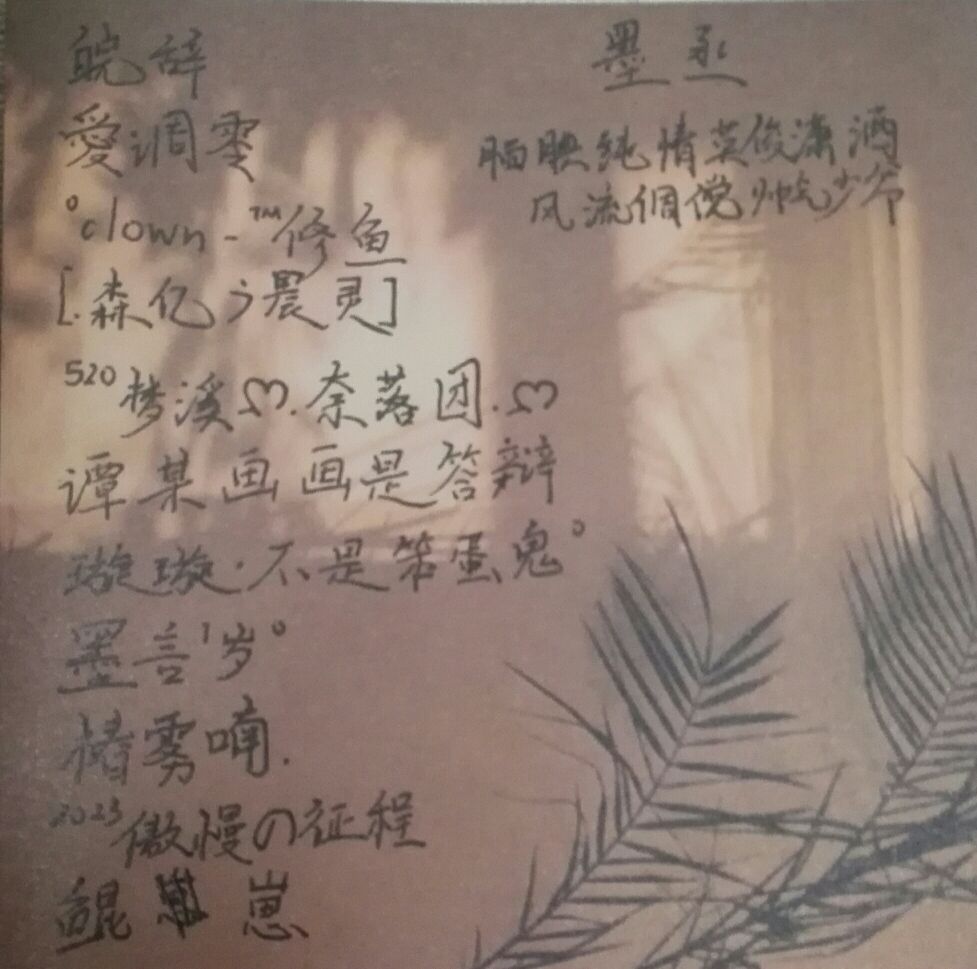 皖辞
愛调零
°clown-™修鱼
[.森亿彡晨灵]
520梦溪ღ.奈落团.ღ
谭某画画是答辩
璇璇·不是笨蛋鬼°
墨言1岁°
情雾喃.
2023傲慢の征程
鲲 崽
墨丞
腼腆纯情英俊潇洒
风流倜傥小皖少爷